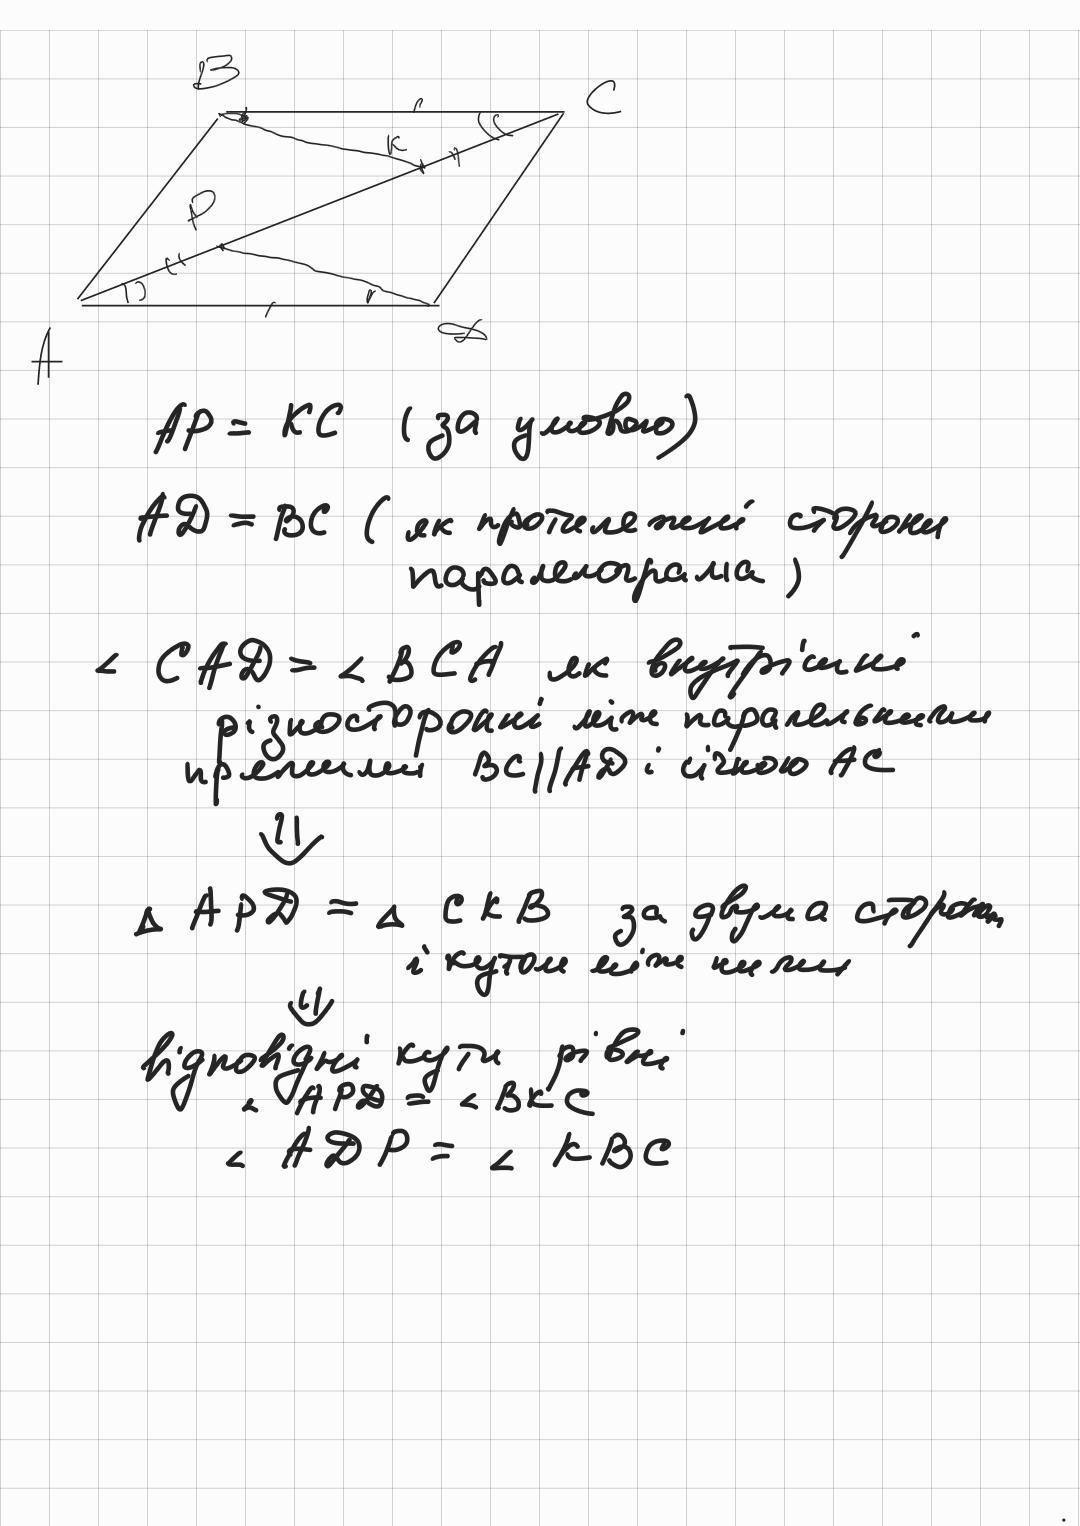 B
C
K
P
A
D
AP = KC (за умовою)
AD = BC ( як протилежні сторони
паралелограма )
∠ CAD = ∠ BCA як внутрішні
різносторонні між паралельними
прямими BC||AD і січною AC
⇓
△ APD = △ CKB за двума сторонам
і кутом між ними
⇓
відповідні кути рівні
∠ APD = ∠ BKC
∠ ADP = ∠ KBC